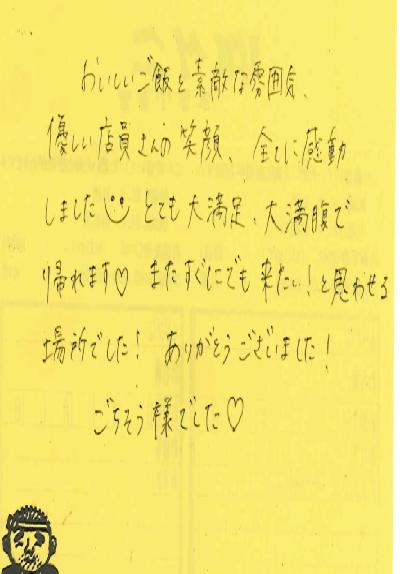 おいしいご飯と素敵な雰囲気、
優しい店員さんの笑顔、全てに感動
しました とても大満足、大満腹で
帰れます♡ またすぐにでも来たい！と思わせる
場所でした！ ありがとうございました！
ごちそう様でした♡